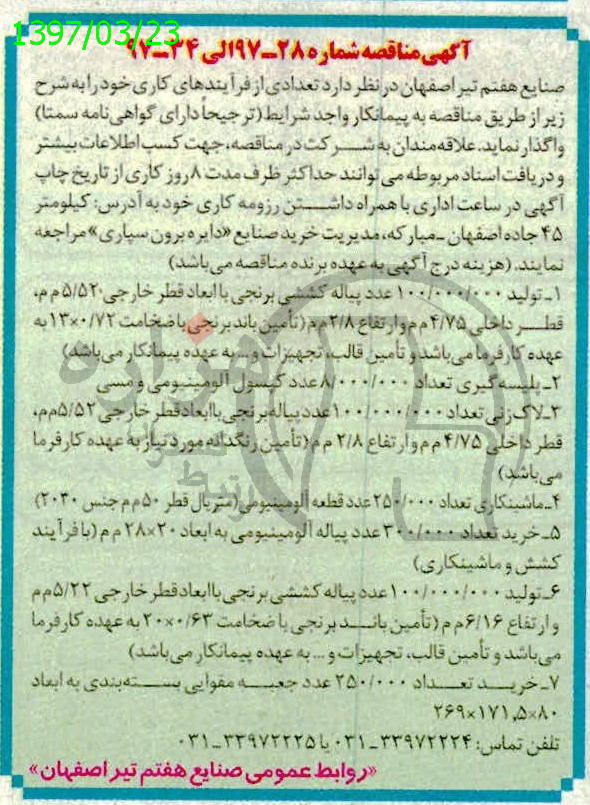 1397/03/23
آگهی مناقصه شماره ۲۸-۹۷ الی ۳۴-۹۷
صنایع هفتم تیر اصفهان در نظر دارد تعدادی از فرآیندهای کاری خود را به شرح
زیر از طریق مناقصه به پیمانکار واجد شرایط (ترجیحاً دارای گواهی‌نامه سمتا)
واگذار نماید. علاقه‌مندان به شرکت در مناقصه، جهت کسب اطلاعات بیشتر
و دریافت اسناد مربوطه می‌توانند حداکثر ظرف مدت ۸ روز کاری از تاریخ چاپ
آگهی در ساعت اداری با همراه داشتن رزومه کاری خود به آدرس: کیلومتر
۴۵ جاده اصفهان - مبارکه، مدیریت خرید صنایع «دایره برون سپاری» مراجعه
نمایند. (هزینه درج آگهی به عهده برنده مناقصه می‌باشد)
۱- تولید ۱۰۰/۰۰۰/۰۰۰ عدد پیاله کششی برنجی با ابعاد قطر خارجی ۵/۵۲ م م،
قطر داخلی ۴/۷۵ م م و ارتفاع ۲/۸ م م (تأمین باند برنجی با ضخامت ۰/۷۲×۱۳ به
عهده کارفرما می‌باشد و تأمین قالب، تجهیزات و ... به عهده پیمانکار می‌باشد)
۲- پلیسه گیری تعداد ۸/۰۰۰/۰۰۰ عدد کپسول آلومینیومی و مسی
۳- لاک زنی تعداد ۱۰۰/۰۰۰/۰۰۰ عدد پیاله برنجی با ابعاد قطر خارجی ۵/۵۲ م م،
قطر داخلی ۴/۷۵ م م و ارتفاع ۲/۸ م م (تأمین رنگدانه مورد نیاز به عهده کارفرما
می‌باشد)
۴- ماشینکاری تعداد ۲۵۰/۰۰۰ عدد قطعه آلومینیومی (متریال قطر ۵۰ م م جنس ۲۰۳۰)
۵- خرید تعداد ۳۰۰/۰۰۰ عدد پیاله آلومینیومی به ابعاد ۲۰×۲۸ م م (با فرآیند
کشش و ماشینکاری)
۶- تولید ۱۰۰/۰۰۰/۰۰۰ عدد پیاله کششی برنجی با ابعاد قطر خارجی ۵/۲۲ م م
و ارتفاع ۶/۱۶ م م (تأمین باند برنجی با ضخامت ۰/۶۳×۲۰ به عهده کارفرما
می‌باشد و تأمین قالب، تجهیزات و ... به عهده پیمانکار می‌باشد)
۷- خرید تعداد ۲۵۰/۰۰۰ عدد جعبه مقوایی بسته‌بندی به ابعاد
۸۰×۱۷۱,۵×۲۶۹
تلفن تماس: ۳۳۹۷۲۲۲۴-۰۳۱ یا ۳۳۹۷۲۲۲۵-۰۳۱
«روابط عمومی صنایع هفتم تیر اصفهان»
هزاره